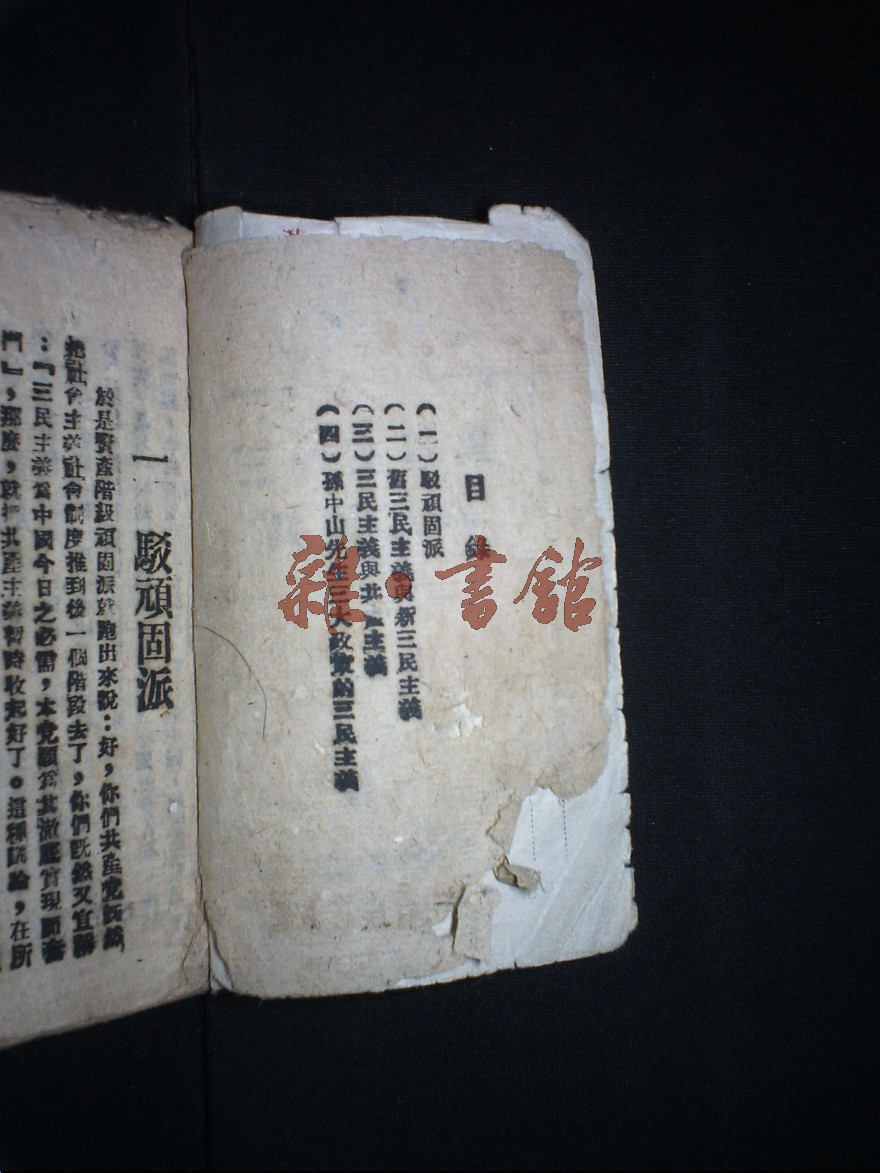 目錄
(一)駁頑固派
(二)舊三民主義與新三民主義
(三)三民主義與共產主義
(四)孫中山先生三大政策的三民主義
一 駁頑固派
於是資產階級頑固派就跑出來說:好,你們共產党既然
把社會主義社會制度推到後一個階段去了,你們既然又宣稱
:『三民主義爲中國今日之必需,本党願爲其澈底實現而奮
鬥』,那麽,就把共產主義暫時收起好了。這種議論,在所
雜·書館